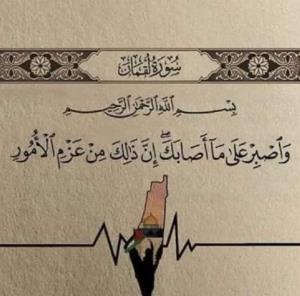 سُورَةُ لُقْمَانَ
بِسْمِ اللَّهِ الرَّحْمَٰنِ الرَّحِيمِ
وَاصْبِرْ عَلَىٰ مَا أَصَابَكَ ۖ إِنَّ ذَٰلِكَ مِنْ عَزْمِ الْأُمُورِ